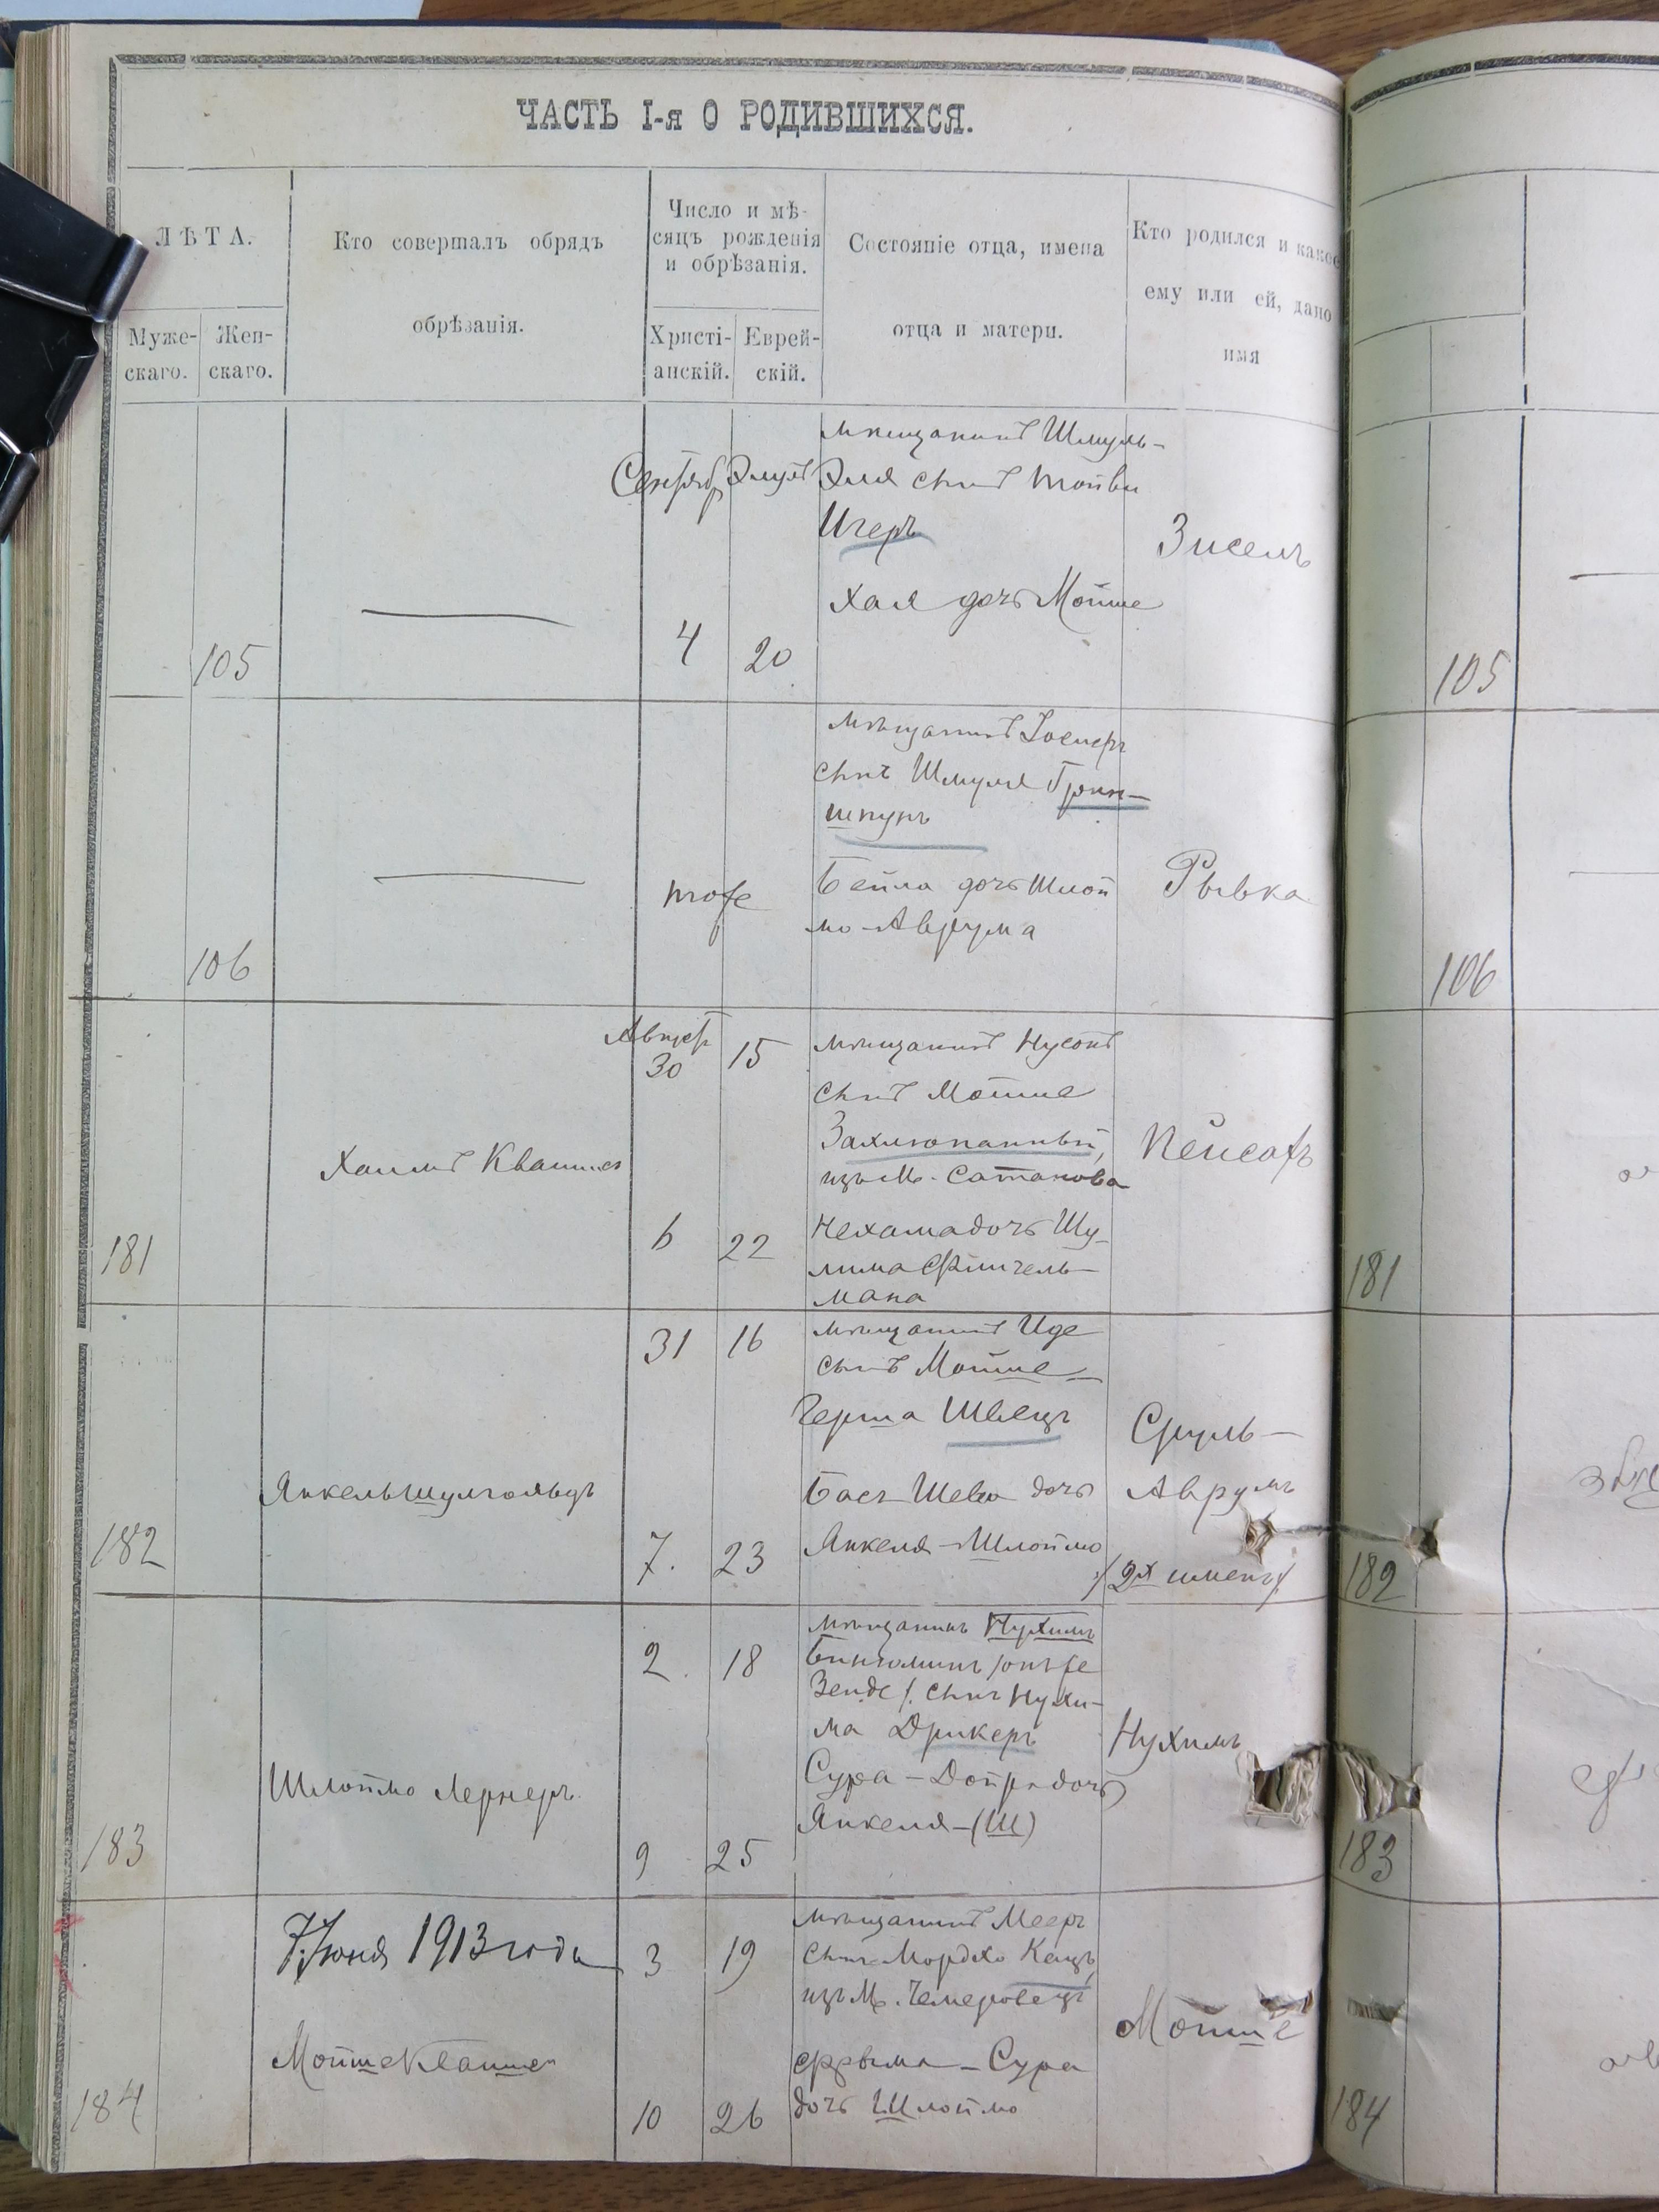 ЧАСТЬ I-я О РОДИВШИХСЯ.
ЛѢТА.
Муже-
скаго.
Жен-
скаго.
Кто совершалъ обрядъ
обрѣзанія.
Число и мѣ-
сяцъ рожденія
и обрѣзанія.
Христі-
анскій.
Еврей-
скій.
Состояніе отца, имена
отца и матери.
Кто родился и какое
ему или ей, дано
имя
105
Сентябр
4
Элулъ
20
мѣщанинъ Шмуль-
Эля сынъ Тойви
Игеръ
Хая дочь Мойше
Зисель
105
106
тоже
мѣщанинъ Іосифъ
сынъ Шмуля Грин-
шпунъ
Бейла дочь Шлой
мо-Аврума
Рывка
106
181
Хаимъ
Август
30
15
6
22
мѣщанинъ Нусонъ
сынъ Мойше
изъ м. Сатанова
Нехама дочь Шу-
лима
мана
Пейсахъ
181
182
Янкель Шулгольцъ
31
16
7.
23
мѣщанинъ Иде
сынъ Мойше-
Герша Швецъ
Бася-Шева дочь
Янкеля-Шлоймо
Сруль-
Аврумъ
/2х именъ/
182
183
Шлоймо Лернеръ
2.
18
9
25
мѣщанинъ Нухимъ
Бинюминъ /онъ же
Зейде/. сынъ Нухи-
ма Дрикеръ
Сура-Дойра дочь
Янкеля-(Ш)
Нухимъ
183
184
7. Іюня 1913 года
3
19
10
26
мѣщанинъ Мееръ
сынъ Мордко Кацъ,
изъ м. Чемеровецъ
Фрыма-Сура
дочь Шлоймо
Мойше
Мойше
184